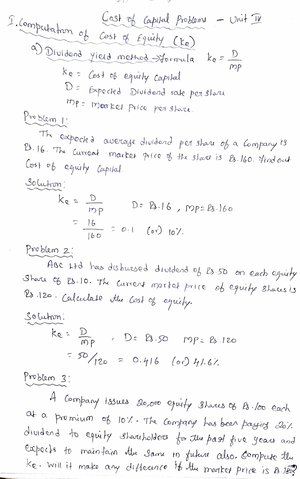 Cost of Capital Problems - Unit IV
I. Computation of Cost of Equity (Ke)
a) Dividend yield method → formula Ke = D/MP
Ke = Cost of equity Capital
D = Expected Dividend rate per share
MP = Market price per share.
Problem 1:
The expected average dividend per share of a Company is
Rs.16. The current market price of the share is Rs.160. Find out
Cost of equity Capital.
Solution:
Ke = D/MP D = Rs.16, MP = Rs.160
= 16/160 = 0.1 (or) 10%.
Problem 2:
ABC Ltd has disbursed dividend of Rs.50 on each equity
share of Rs.10. The current market price of equity shares is
Rs.120. Calculate the Cost of equity.
Solution:
Ke = D/MP, D = Rs.50 MP = Rs.120
= 50/120 = 0.416 (or) 41.6%.
Problem 3:
A Company issues 20,000 equity shares of Rs.100 each
at a premium of 10%. The Company has been paying 20%
dividend to equity shareholders for the past five years and
expects to maintain the same in future also. Compute the
Ke. Will it make any difference if the market price is Rs.